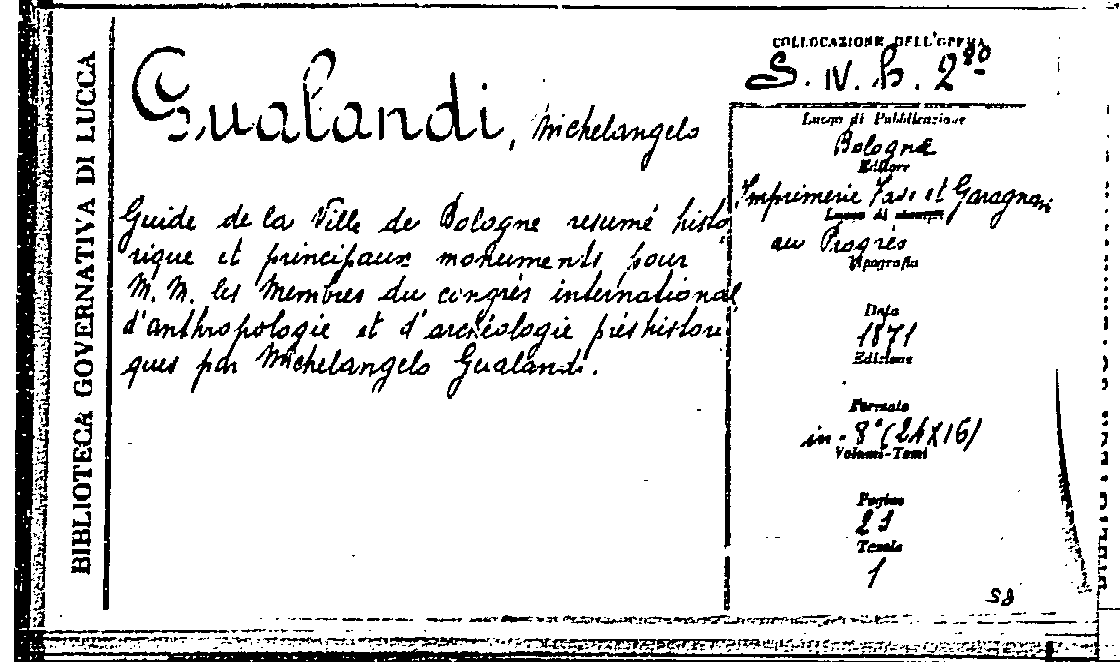 BIBLIOTECA GOVERNATIVA DI LUCCA
Gualandi, Michelangelo
Guide de la Ville de Bologne resumé histo
rique et principaux monuments pour
M. M. les Membres du congrès international
d'anthropologie et d'archéologie préshistori
ques par Michelangelo Gualandi.
COLLOCAZIONE DELL'OPERA
S. IV. h. 2
Luogo di Pubblicazione
Bologna
Editore
Imprimerie et Garagnani
Luogo di stampa
au Progrès
Tipografia
Data
1871
Edizione
Formato
in-8° (24X16)
Volumi-Tomi
Pagine
Tavole
1